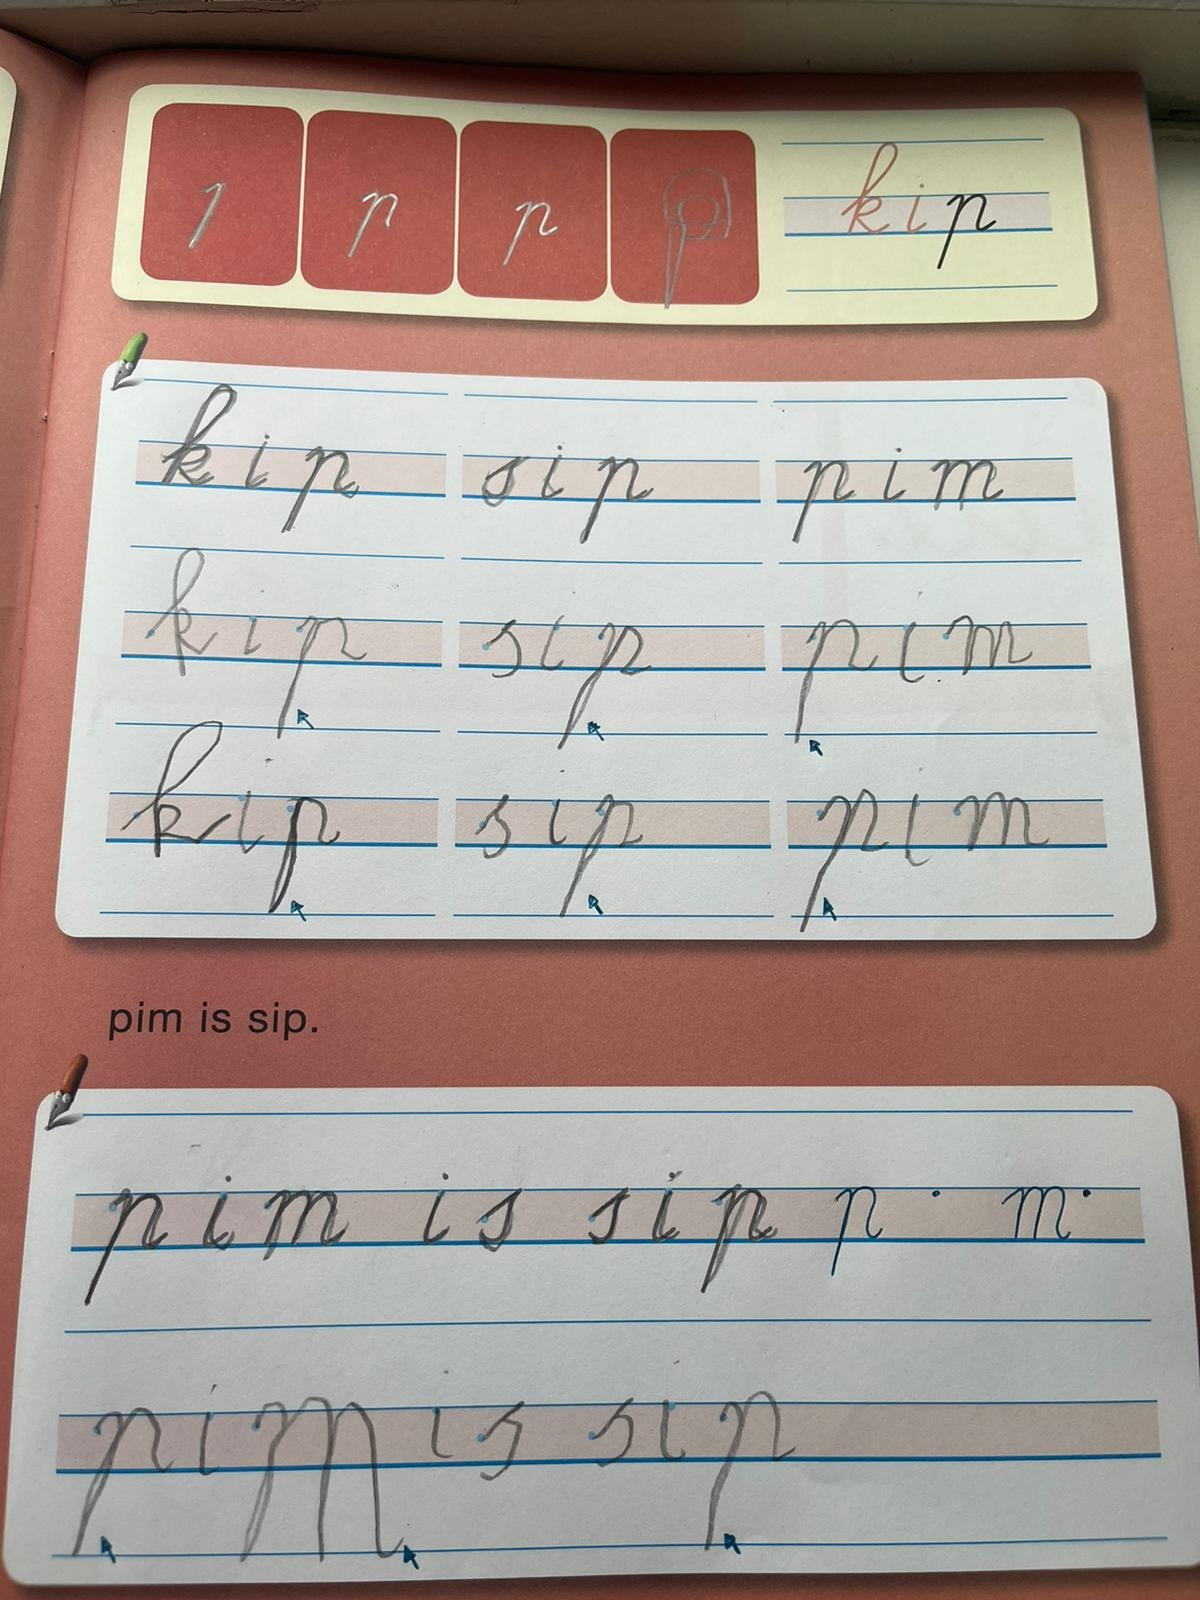 p p p p kip
kip sip pim
kip sip pim
kip sip pim
pim is sip.
pim is sip p . m.
pim is sip